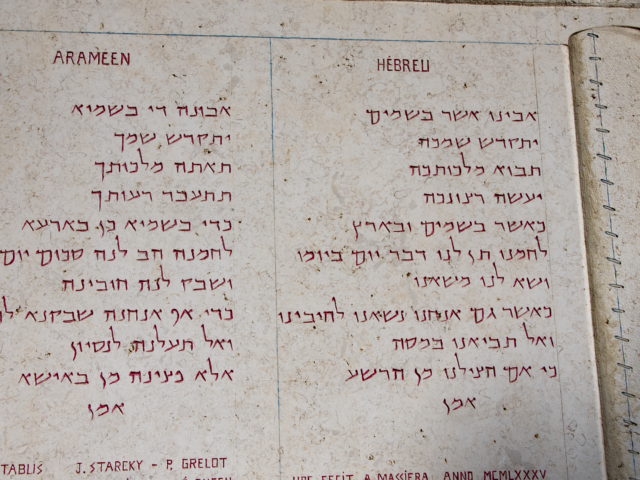 ARAMEEN
אבונה די בשמיא
יתקדש שמך
תאתה מלכותך
תתעבד רעותך
כדי בשמיא כן בארעא
לחמנה הב לנה סכום יום
ושבק לנה חובינה
כדי אף אנחנה שבקנא
ואל תעלנה לנסיון
אלא פצינה מן באישא
אמן
TABLIS J. STARCKY - P. GRELOT
HÉBREU
אבינו אשר בשמים
יתקדש שמכה
תבוא מלכותכה
יעשה רצונכה
כאשר בשמים ובארץ
לחמנו תן לנו דבר יום ביומו
ושא לנו משאינו
כאשר גם אנחנו נשאנו לחיבינו
ואל תביאנו במסה
כי אם הצילנו מן הרשע
אמן
FECIT A. MASSIERA ANNO MCMLXXXV